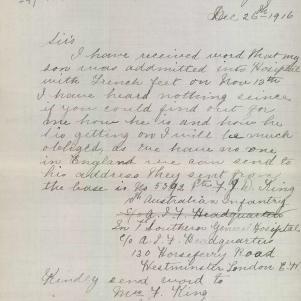 Dec 26th 1916
Sir
I have received word that my
son was addmitted into Hospital
with Trench feet on Nov 13th
I have heard nothing seince
if you could find out for
me how he is and how he
is getting on I will be much
obliged, as we have no one
in England we can send to
his address they sent from
the base is No Pte F. J. D. King
th Australian Infantry
c/o A.I.F. Headquarters
In Southern General Hospital
C/o A.I.F Headquarters
130 Horseferry Road
Westminster London E.W
Kindly send word to
Mrs F. King